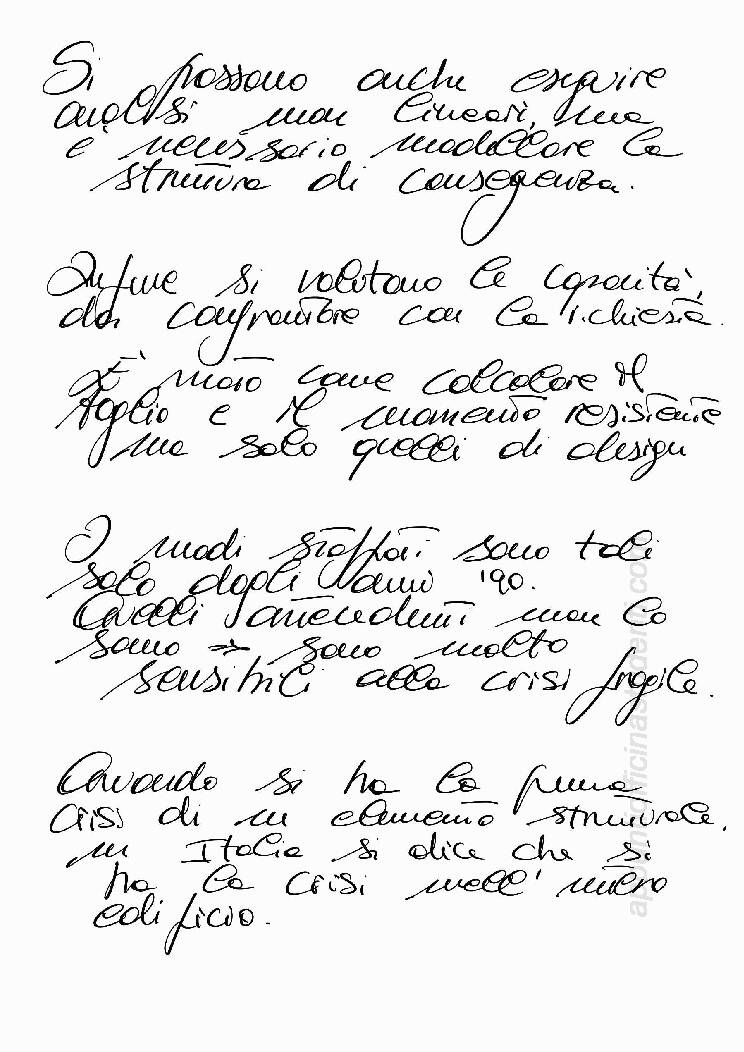 Si possono anche eseguire
analisi non lineari, ma
è necessario modellare la
struttura di conseguenza.
Infine si valutano le capacità,
da confrontare con la richiesta.
È noto come calcolare il
taglio e il momento resistente
ma solo quelli di design
I nodi staffati sono tali
solo dagli anni '90.
Quelli antecedenti non lo
sono => sono molto
sensibili alla crisi fragile.
Quando si ha la prima
crisi di un elemento strutturale,
in Italia si dice che si
ha la crisi nell'intero
edificio.